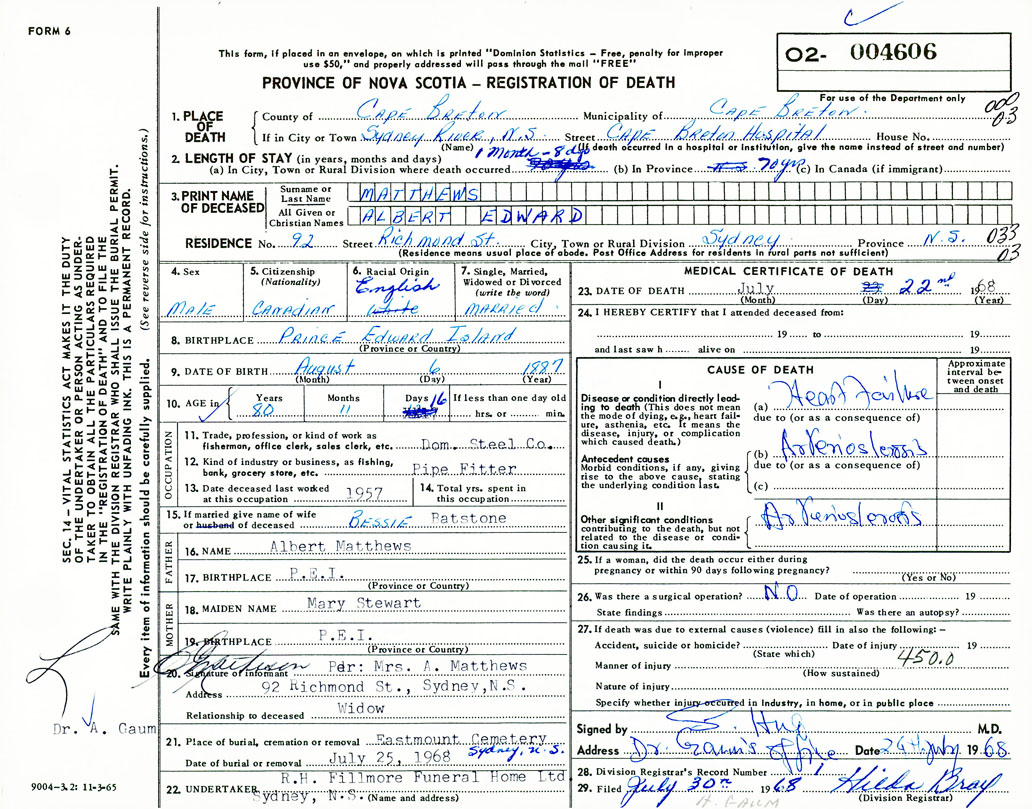 FORM 6
This form, if placed in an envelope, on which is printed "Dominion Statistics – Free, penalty for improper
use $50," and properly addressed will pass through the mail "FREE"
O2- 004606
PROVINCE OF NOVA SCOTIA – REGISTRATION OF DEATH
For use of the Department only
000
03
1. PLACE OF DEATH
County of Cape Breton Municipality of Cape Breton
If in City or Town Sydney River, N.S. Street Cape Breton Hospital House No.
(Name) (If death occurred in a hospital or institution, give the name instead of street and number)
2. LENGTH OF STAY (in years, months and days) 1 Month - 8 dys
(a) In City, Town or Rural Division where death occurred (b) In Province 70 yrs. (c) In Canada (if immigrant)
3. PRINT NAME OF DECEASED
Surname or Last Name MATTHEWS
All Given or Christian Names ALBERT EDWARD
RESIDENCE No. 92 Street Richmond St. City, Town or Rural Division Sydney Province N.S. 033
03
(Residence means usual place of abode. Post Office Address for residents in rural parts not sufficient)
4. Sex
MALE
5. Citizenship
(Nationality)
CANADIAN
6. Racial Origin
English
White
7. Single, Married,
Widowed or Divorced
(write the word)
MARRIED
8. BIRTHPLACE PRINCE EDWARD ISLAND
(Province or Country)
9. DATE OF BIRTH August 6 1887
(Month) (Day) (Year)
10. AGE in
Years 80
Months 11
Days 16
If less than one day old
hrs. or min.
OCCUPATION
11. Trade, profession, or kind of work as
fisherman, office clerk, sales clerk, etc. Dom. Steel Co.
12. Kind of industry or business, as fishing,
bank, grocery store, etc. Pipe Fitter
13. Date deceased last worked
at this occupation 1957
14. Total yrs. spent in
this occupation
15. If married give name of wife
or husband of deceased BESSIE Batstone
FATHER
16. NAME Albert Matthews
17. BIRTHPLACE P.E.I.
(Province or Country)
MOTHER
18. MAIDEN NAME Mary Stewart
19. BIRTHPLACE P.E.I.
(Province or Country)
20. Signature of informant Per: Mrs. A. Matthews
Address 92 Richmond St., Sydney, N.S.
Relationship to deceased Widow
21. Place of burial, cremation or removal Eastmount Cemetery
Sydney, N.S.
Date of burial or removal July 25, 1968
22. UNDERTAKER R.H. Fillmore Funeral Home Ltd
Sydney, N.S. (Name and address)
MEDICAL CERTIFICATE OF DEATH
23. DATE OF DEATH July 22nd 1968
(Month) (Day) (Year)
24. I HEREBY CERTIFY that I attended deceased from:
19 to 19
and last saw h alive on 19
CAUSE OF DEATH
Approximate interval between onset and death
I
Disease or condition directly lead-
ing to death (This does not mean
the mode of dying, e.g., heart fail-
ure, asthenia, etc. It means the
disease, injury, or complication
which caused death.)
(a) Heart Failure
due to (or as a consequence of)
Antecedent causes
Morbid conditions, if any, giving
rise to the above cause, stating
the underlying condition last.
(b)
due to (or as a consequence of)
(c)
II
Other significant conditions
contributing to the death, but not
related to the disease or condi-
tion causing it.
25. If a woman, did the death occur either during
pregnancy or within 90 days following pregnancy?
(Yes or No)
26. Was there a surgical operation? NO Date of operation 19
State findings Was there an autopsy?
27. If death was due to external causes (violence) fill in also the following: –
Accident, suicide or homicide? Date of injury 19
(State which) 450.0
Manner of injury
(How sustained)
Nature of injury
Specify whether injury occurred in Industry, in home, or in public place
Signed by M.D.
Address Dr. Gaum's Office Date 24th July 1968
28. Division Registrar's Record Number 1
29. Filed July 30th 1968 Hilda Bray
(Division Registrar)
H. GAUM
SEC. 14 – VITAL STATISTICS ACT MAKES IT THE DUTY
OF THE UNDERTAKER OR PERSON ACTING AS UNDER-
TAKER TO OBTAIN ALL THE PARTICULARS REQUIRED
IN THE "REGISTRATION OF DEATH" AND TO FILE THE
SAME WITH THE DIVISION REGISTRAR WHO SHALL ISSUE THE BURIAL PERMIT.
WRITE PLAINLY WITH UNFADING INK. THIS IS A PERMANENT RECORD.
Every item of information should be carefully supplied. (See reverse side for instructions.)
Dr. A. Gaum
9004–3.2: 11-3-65